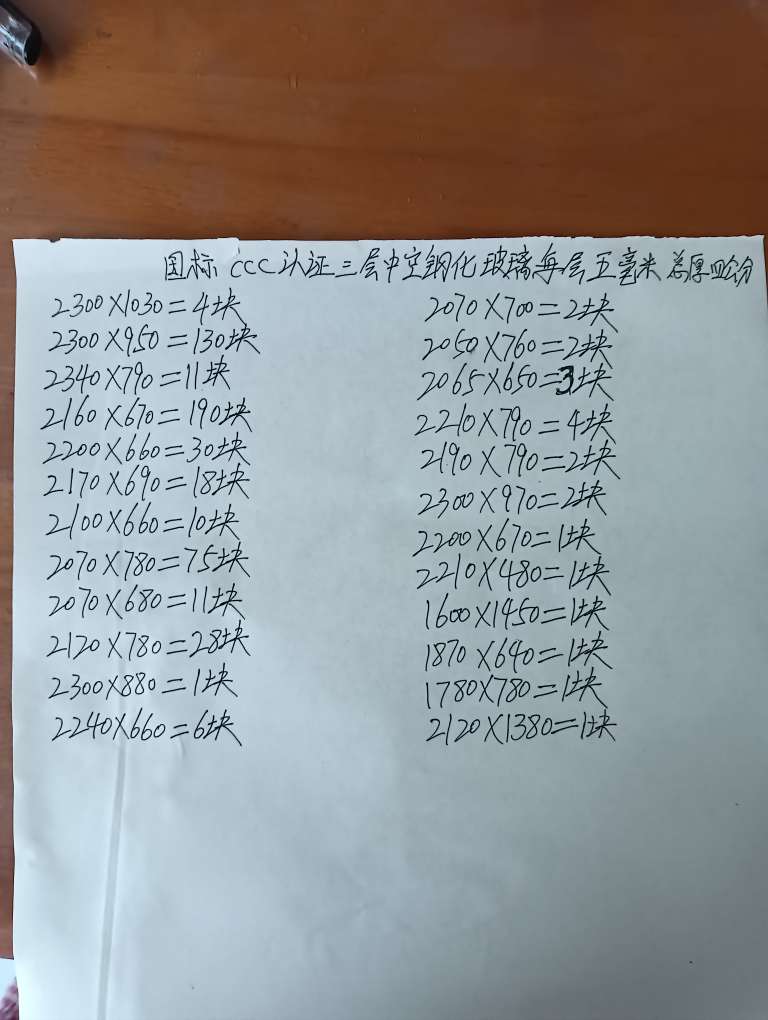 国标CCC认证三层中空钢化玻璃每层五毫米 总厚四公分
2300×1030=4块
2300×950=130块
2340×790=11块
2160×670=190块
2200×660=30块
2170×690=18块
2100×660=10块
2070×780=75块
2070×680=11块
2120×780=28块
2300×880=1块
2240×660=6块
2070×700=2块
2050×760=2块
2065×650=3块
2210×790=4块
2190×790=2块
2300×970=2块
2200×670=1块
2210×480=1块
1600×1450=1块
1870×640=1块
1780×780=1块
2120×1380=1块